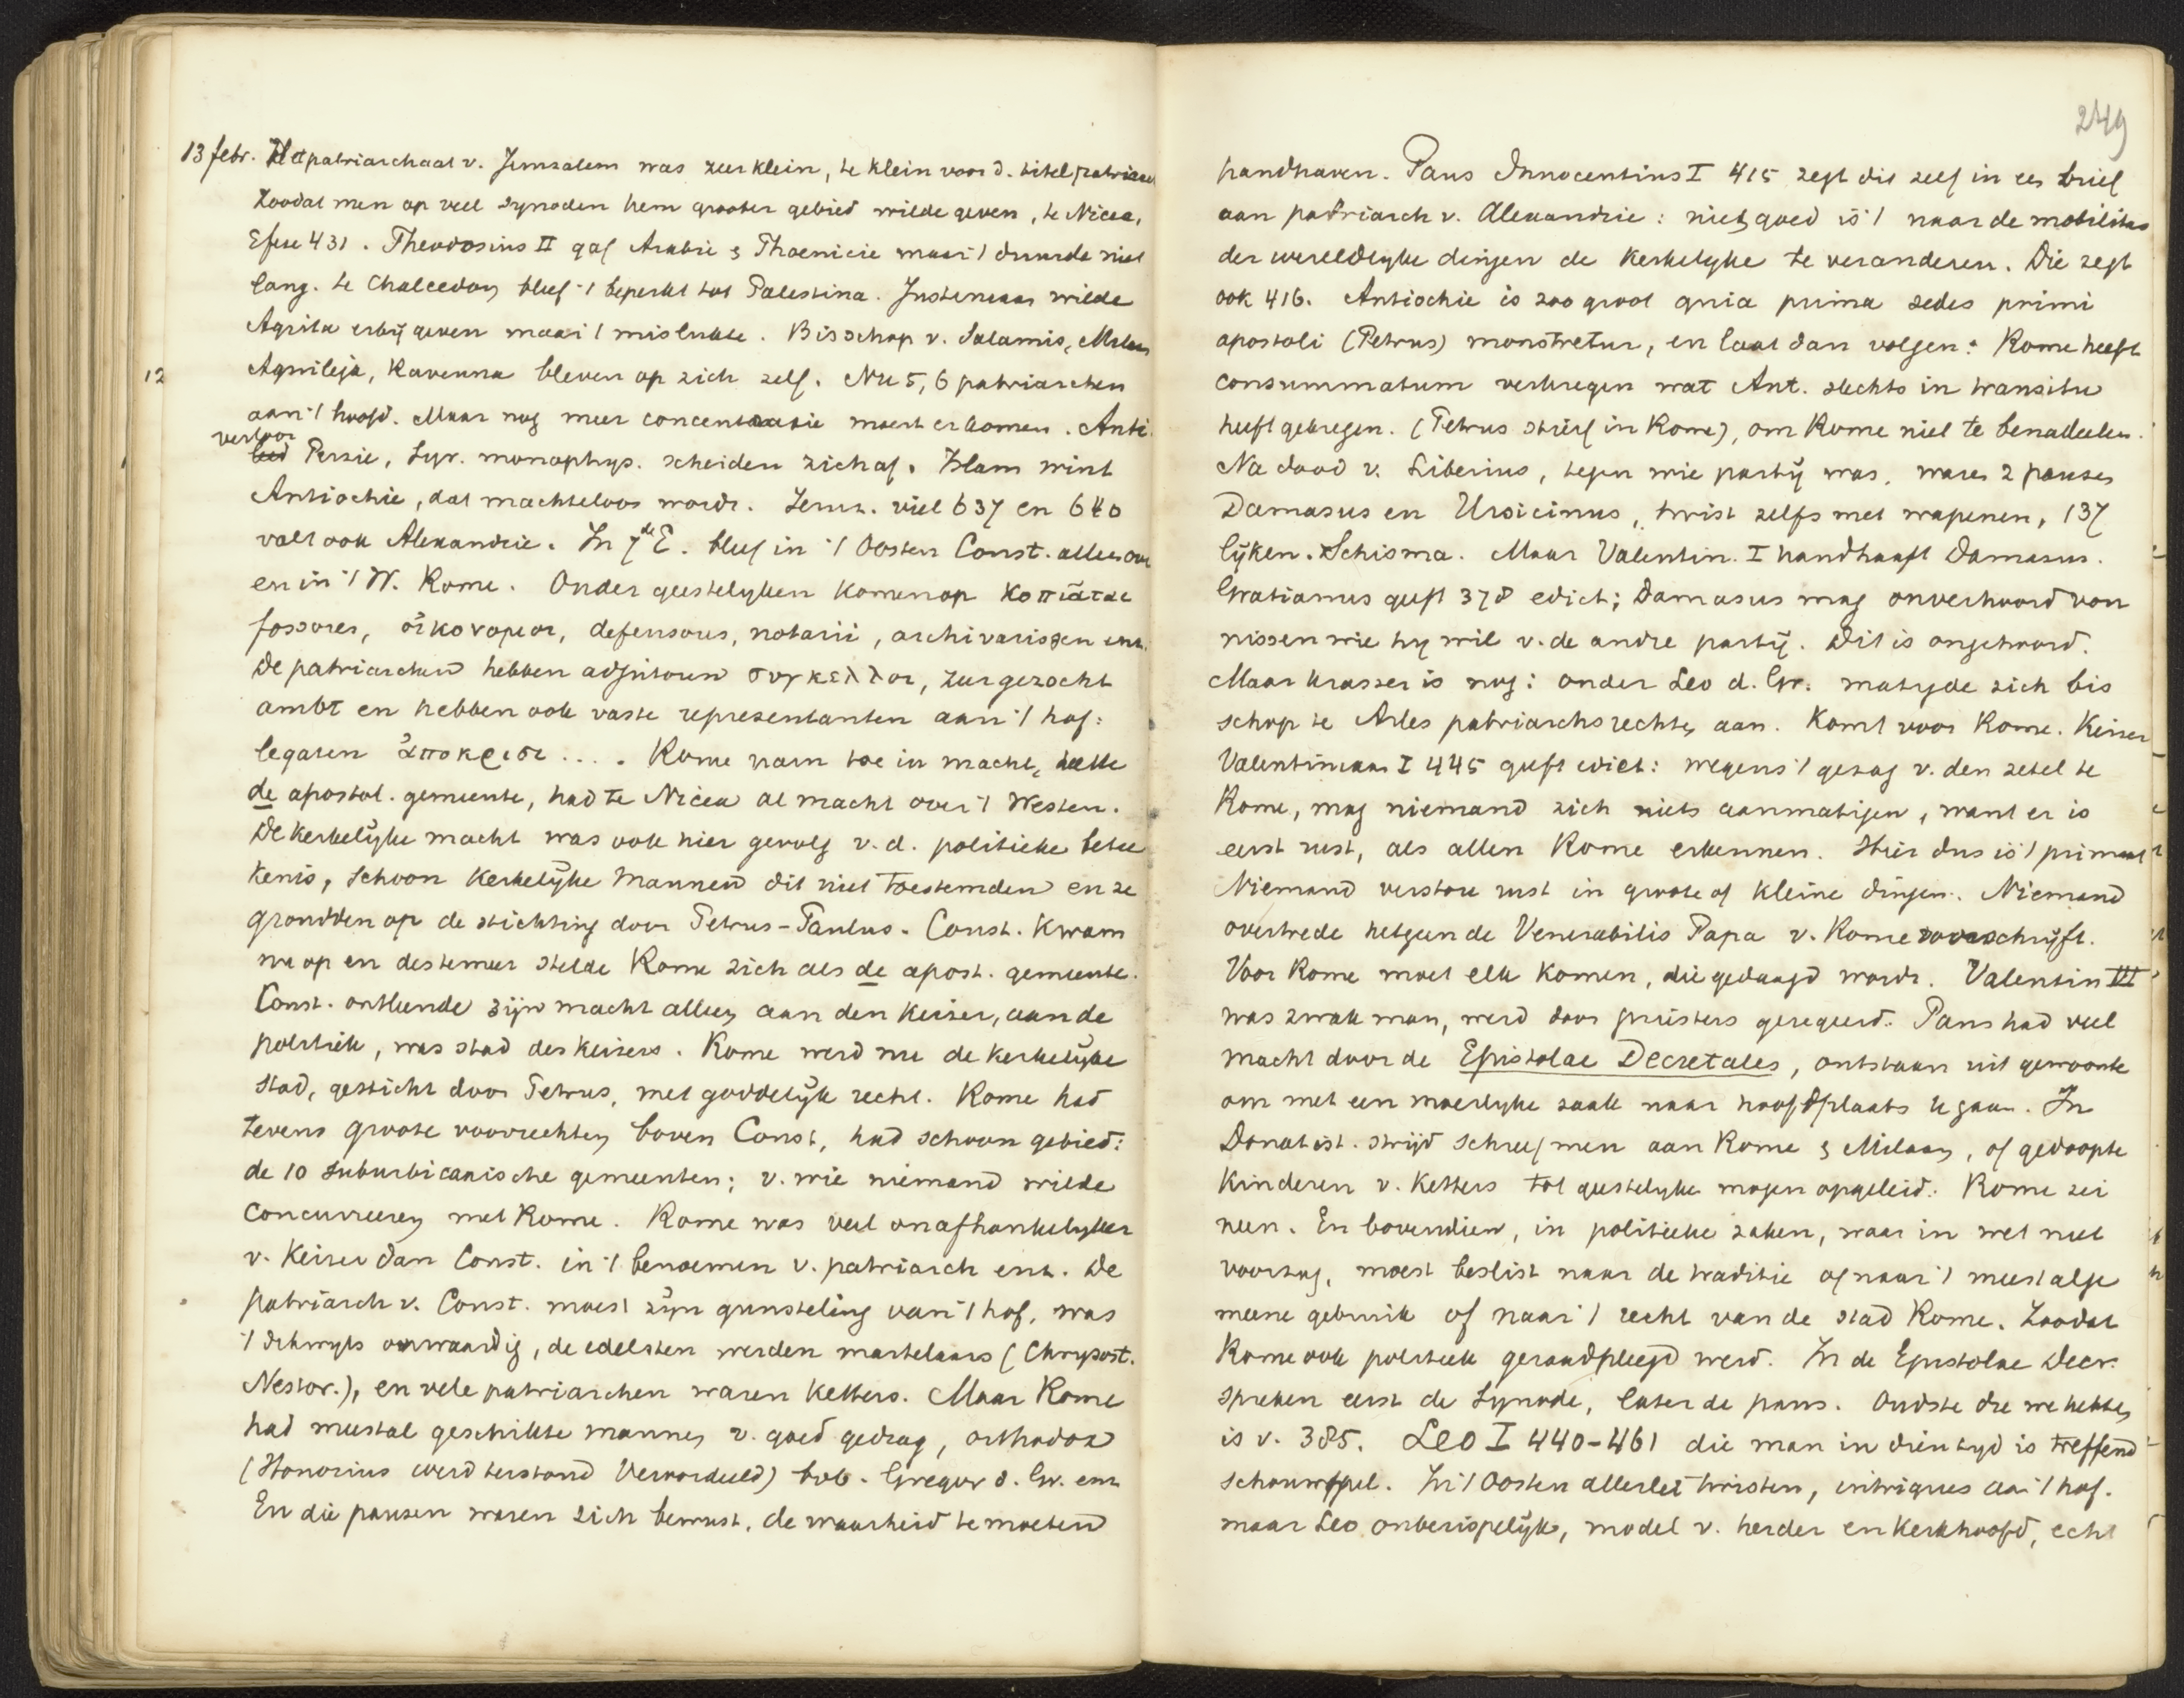 13 febr. Het patriarchaat v. Jeruzalem was zeer klein, te klein voor d. titel patriarch
Zoodat men op veel synoden hem grooter gebied wilde geven, te Nicea,
Efese 431. Theodosius II gaf Arabie & Phoenicie maar 't duurde niet
lang. te Chalcedon bleef 't beperkt tot Palestina. Justiniaan wilde
erbij geven maar 't mislukte. Bisschop v. Salamis, Milaan
12 Aquileja, Ravenna bleven op zich zelf. Nu 5, 6 patriarchen
aan 't hoofd. Maar nog meer concentratie moest er komen. Anti.
verloor
Perzie, Syr. monophys. scheiden zich af. Islam wint
Antiochie, dat machteloos wordt. Jeruz. viel 637 en 640
valt ook Alexandrie. In 7de E. bleef in 't Oosten Const. alleen over
en in 't W. Rome. Onder geestelyken komen op κοπιᾶται
fossores, οἰκονομοι, defensores, notarii, archivarissen enz.
De patriarchen hebben adjutoren συγκελλοι, zeer gezocht
ambt en hebben ook vaste representanten aan 't hof:
legaten ἀποκρισι .... Rome nam toe in macht,
de apostol. gemeente, had te Nicea al macht over 't Westen.
De kerkelyke macht was ook hier gevolg v. d. politieke betee
kenis, schoon kerkelyke mannen dit niet toestemden en ze
grondden op de stichting door Petrus-Paulus. Const. kwam
nu op en destemeer stelde Rome zich als de apost. gemeente.
Const. ontleende zijn macht alleen aan den Keizer, aan de
politiek, was stad des keizers. Rome werd nu de kerkelyke
stad, gesticht door Petrus, met goddelyk recht. Rome had
tevens groote voorrechten boven Const, had schoon gebied:
de 10 suburbicarische gemeenten; v. wie niemand wilde
concurreeren met Rome. Rome was veel onafhankelyker
v. Keizer dan Const. in 't benoemen v. patriarch enz. De
patriarch v. Const. moest zyn gunsteling van 't hof, was
't dikwyls onwaardig, de edelsten werden martelaars (Chrysost.
Nestor.), en vele patriarchen waren Ketters. Maar Rome
had meestal geschikte mannen v. goed gedrag, orthodox
(Honorius werd terstond Veroordeeld) bvb. Gregor d. Gr. enz
En die pausen waren zich bewust, de waarheid te moeten
249
handhaven. Paus Innocentius I 415 zegt dit zelf in een brief
aan patriarch v. Alexandrie: niet goed is 't naar de mobilitas
der wereldlyke dingen de kerkelyke te veranderen. Die zegt
ook 416. Antiochie is zoo groot quia prima sedes primi
apostoli (Petrus) monstretur, en laat dan volgen: Rome heeft
consummatum verkregen wat Ant. slechts in transitu
heeft gekregen. (Petrus stierf in Rome), om Rome niet te benadeelen.
Na dood v. Liberius, tegen wie partij was, waren 2 pausen
Damasus en Ursicinus, twist zelfs met wapenen, 137
lijken. Schisma. Maar Valentin. I handhaaft Damasus.
Gratianus geeft 378 edict; Damasus mag onverhoord von
nissen wie hy wil v. de andre partij. Dit is ongehoord.
Maar krasser is nog: onder Leo d. Gr. matigde zich bis
schop te Arles patriarchsrechten aan. Komt voor Rome. Keizer
Valentiniaan I 445 geeft edict: wegens 't gezag v. den zetel te
Rome, mag niemand zich niets aanmatigen, want er is
eerst rust, als allen Rome erkennen. Hier dus is 't primaat
Niemand verstore rust in groote of kleine dingen. Niemand
overtrede hetgeen de Venerabilis Papa v. Rome voorschrijft.
Voor Rome moet elk komen, die gedaagd wordt. Valentin III
was zwak man, werd door priesters geregeerd. Paus had veel
macht door de Epistolae Decretales, ontstaan uit gewoonte
om met een moeilyke zaak naar hoofdplaats te gaan. In
Donatist. strijd schreef men aan Rome & Milaan, of gedoopte
Kinderen v. Ketters tot geestelyke mogen opgeleid. Rome zei
neen. En bovendien, in politieke zaken, waar in wet niet
voorzag, moest beslist naar de traditie of naar 't meest alge
meene gebruik of naar 't recht van de stad Rome. Zoodat
Rome ook politiek geraadpleegd werd. In de Epistolae Decr.
spreken eerst de Synode, later de paus. Oudste die we hebben
is v. 385. Leo I 440-461 die man in dien tyd is treffend
schouwspel. In 't Oosten allerlei twisten, intrigues aan 't hof.
maar Leo onberispelyk, model v. herder en kerkhoofd, echt